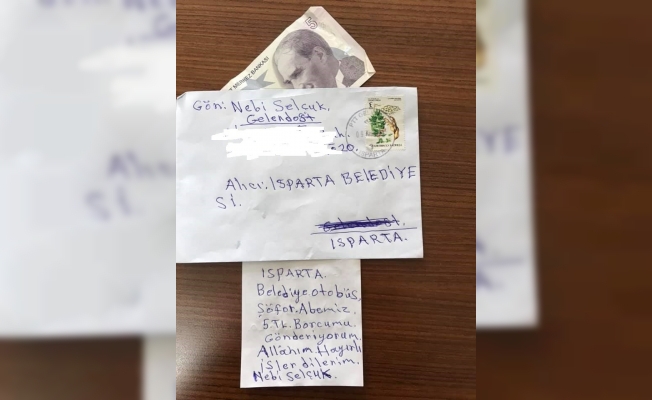 5
MERKEZ BANKASI
Gön: Nebi Selçuk.
Gelendost
h.
20.
Alıcı: ISPARTA BELEDİYE
Sİ.
ISPARTA.
ISPARTA.
Belediye otobüs,
Şöför. Abemiz.
5 TL. Borcumu
Gönderiyorum
Allahım. Hayırlı
işler dilerim.
Nebi Selçuk.